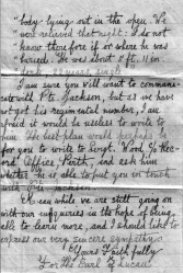 "body lying out in the open. We
were relieved that night: I do not
know therefore if or where he was
buried. He was about 5 ft. 11 in.
dark, 22 years, single
I am sure you will want to communi-
cate with Pte. Jackson, but as we have
not got his regimental number, I am
afraid it would be useless to write to
him. The best plan would perhaps be
for you to write to Sergt. Wood, Rec-
ord Office, Perth, and ask him
whether he is able to put you in touch
with Pte. Jackson.
Meanwhile we are still going on
with our enquiries in the hope of being
able to learn more, and I should like to
express our very sincere sympathy.
Yours faithfully
For the Earl of Lucan